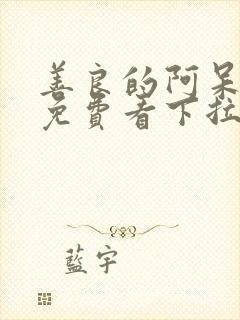 善良的阿呆
免費看下拉
藍宇